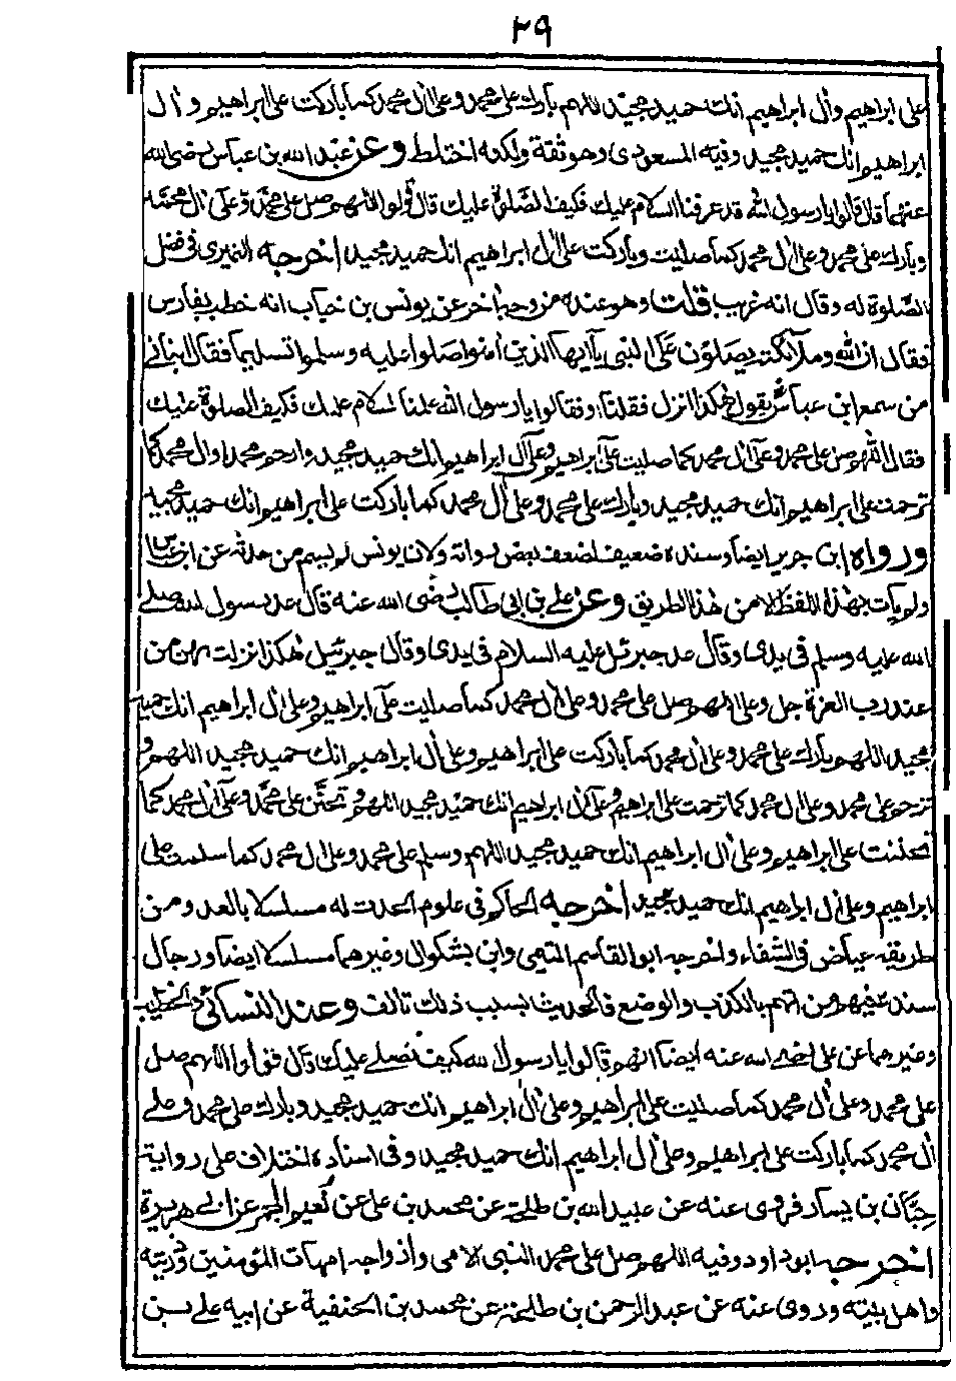 ٣٩
على ابراهيم وآل ابراهيم انك حميد مجيد اللهم بارك على محمد وعلى آل محمد كما باركت على ابراهيم وآل
ابراهيم انك حميد مجيد وفيه المسعودى وهو ثقة ولكنه اختلط وعن عبد الله بن عباس رضى الله
عنهما قال قالوا يا رسول الله قد عرفنا السلام عليك فكيف الصلوة عليك قال قولوا اللهم صل على محمد وعلى آل محمد
وبارك على محمد وعلى آل محمد كما صليت وباركت على آل ابراهيم انك حميد مجيد اخرجه النميرى فى فضل
الصلوة له وقال انه غريب قلت وهو عنده من وجه آخر عن يونس بن خباب انه خطب بفارس
فقال ان الله وملائكته يصلون على النبى يا ايها الذين آمنوا صلوا عليه وسلموا تسليما فقال انبأنى
من سمع ابن عباس يقول هكذا انزل فقلنا او قالوا يا رسول الله علمنا السلام عليك فكيف الصلوة عليك
فقال اللهم صل على محمد وعلى آل محمد كما صليت على ابراهيم وعلى آل ابراهيم انك حميد مجيد وارحم محمدا وآل محمد كما
ترحمت على ابراهيم انك حميد مجيد وبارك على محمد وعلى آل محمد كما باركت على ابراهيم انك حميد مجيد
ورواه ابن جرير ايضا وسنده ضعيف لضعف بعض رواته ولان يونس لم يسم من حدثه عن ابن عباس
ولم يات بهذا اللفظ الا من هذا الطريق وعن على بن ابى طالب رضى الله عنه قال عد رسول الله صلى
الله عليه وسلم فى يدى وقال عد جبرئيل عليه السلام فى يدى وقال جبرئيل هكذا نزلت بهن من
عند رب العزة جل وعلى اللهم صل على محمد وعلى آل محمد كما صليت على ابراهيم وعلى آل ابراهيم انك حميد
مجيد اللهم بارك على محمد وعلى آل محمد كما باركت على ابراهيم وعلى آل ابراهيم انك حميد مجيد اللهم و
ترحم على محمد وعلى آل محمد كما ترحمت على ابراهيم وعلى آل ابراهيم انك حميد مجيد اللهم وتحنن على محمد وعلى آل محمد كما
تحننت على ابراهيم وعلى آل ابراهيم انك حميد مجيد اللهم وسلم على محمد وعلى آل محمد كما سلمت على
ابراهيم وعلى آل ابراهيم انك حميد مجيد اخرجه الحاكم فى علوم الحديث له مسلسلا بالعد ومن
طريقه عياض فى الشفاء واخرجه ابو القاسم التيمى وابن بشكوال وغيرهما مسلسلا ايضا ورجال
سنده فيهم من اتهم بالكذب والوضع فالحديث بسبب ذلك تالف وعند النسائى والخطيب
وغيرهما عن على رضى الله عنه ايضا انهم قالوا يا رسول الله كيف نصلى عليك قال قولوا اللهم صل
على محمد وعلى آل محمد كما صليت على ابراهيم وعلى آل ابراهيم انك حميد مجيد وبارك على محمد وعلى
آل محمد كما باركت على ابراهيم وعلى آل ابراهيم انك حميد مجيد وفى اسناده اختلاف على رواية
حبان بن يسار فروى عنه عن عبيد الله بن طلحة عن محمد بن على عن نعيم المجمر عن ابى هريرة
اخرجه ابو داود وفيه اللهم صل على محمد النبى الامى وازواجه امهات المؤمنين وذريته
واهل بيته وروى عنه عن عبد الرحمن بن طلحة عن محمد بن الحنفية عن ابيه على بن